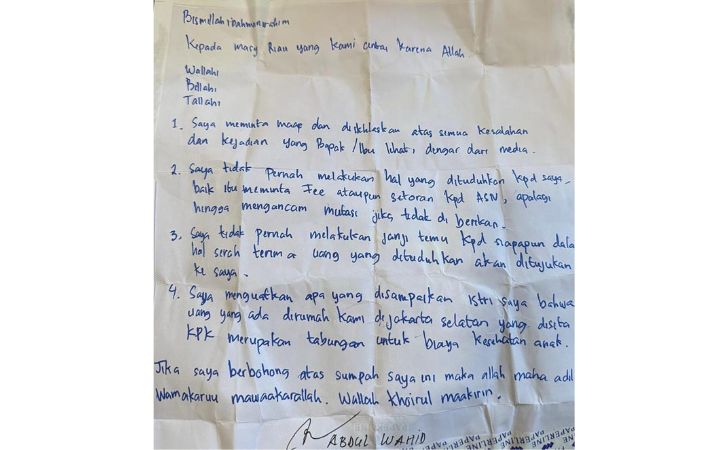 Bismillahirahmanirahim
Kepada masy Riau yang kami cintai karena Allah
Wallahi
Billahi
Tallahi
1. Saya meminta maap dan diikhlaskan atas semua kesalahan
dan kejadian yang Bapak/Ibu lihat, dengar dari media.
2. Saya tidak pernah melakukan hal yang dituduhkan kpd saya
baik itu meminta Fee ataupun setoran kpd ASN, apalagi
hingga mengancam mutasi jika tidak di berikan.
3. Saya tidak pernah melakukan janji temu kpd siapapun dala
hal serah terima uang yang dituduhkan akan ditujukan
ke saya.
4. Saya menguatkan apa yang disampaikan istri saya bahwa
uang yang ada dirumah kami dijakarta selatan yang disita
KPK merupakan tabungan untuk biaya kesehatan anak.
Jika saya berbohong atas sumpah saya ini maka allah maha adil
Wamakaruu mawaakarallah. Wallah khoirul maakirin.
ABDUL WAHID
PAPERLINE PAPERLINE PAPERLINE PAPERLINE